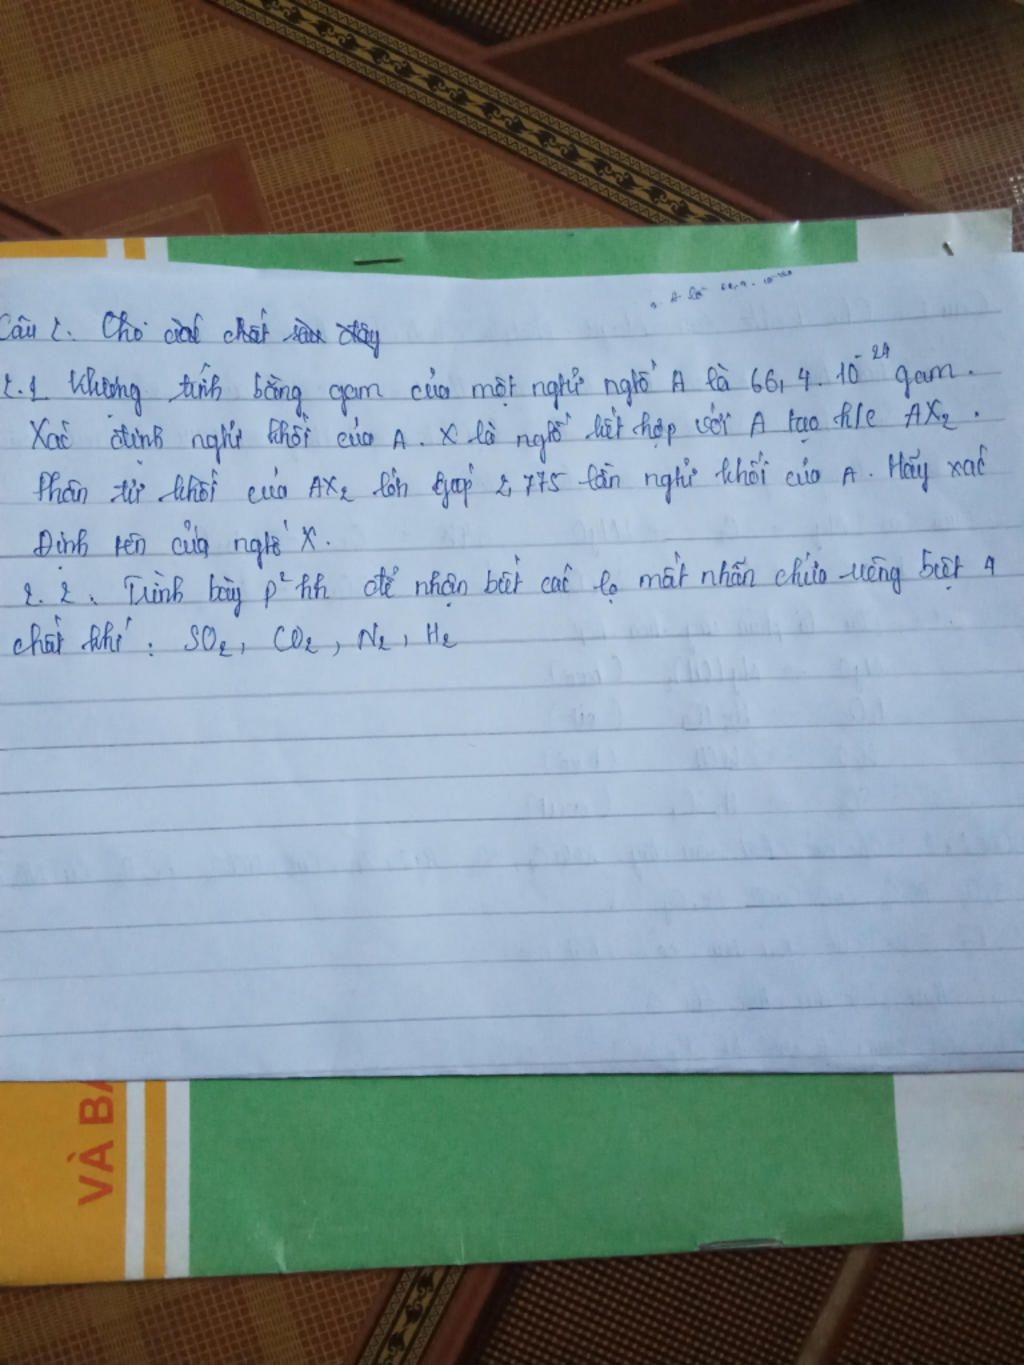 Câu 2. Cho các chất sau đây
2.1 Khượng tính bằng gam của một nghử nghố A là 66,4.10^-24 gam.
Xác định nghử khối của A. X là nghố kết hợp với A tạo h/c AX2.
Phân tử khối của AX2 lớn gấp 2,775 lần nghử khối của A. Hãy xác
Định tên của nghố X.
2.2. Trình bày p² hh để nhận biết các lọ mất nhãn chứa riêng biệt 4
chất khí: SO2, CO2, N2, H2
VÀ BA